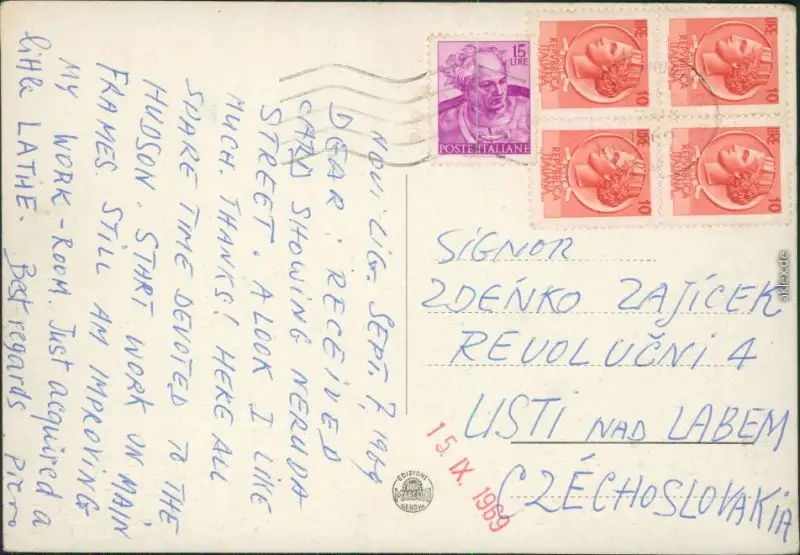 NOVI-LIG. SEPT. 7, 1969
DEAR, RECEIVED
CARD SHOWING NERUDA
STREET. A LOOK I LIKE
MUCH. THANKS! HERE ALL
SPARE TIME DEVOTED TO THE
HUDSON. START WORK ON MAIN
FRAMES. STILL AM IMPROVING
MY WORK-ROOM. Just acquired a
little LATHE. Best regards Piero
15
LIRE
POSTE ITALIANE
LIRE 10
REPVBBLICA
ITALIANA
LIRE 10
REPVBBLICA
ITALIANA
LIRE 10
REPVBBLICA
ITALIANA
LIRE 10
REPVBBLICA
ITALIANA
SIGNOR
ZDEŇKO ZAJÍCEK
REVOLUČNI 4
USTI NAD LABEM
CZÉCHOSLOVAKIA
15. IX. 1969
EDIZIONI
GENOVA
aklex.de